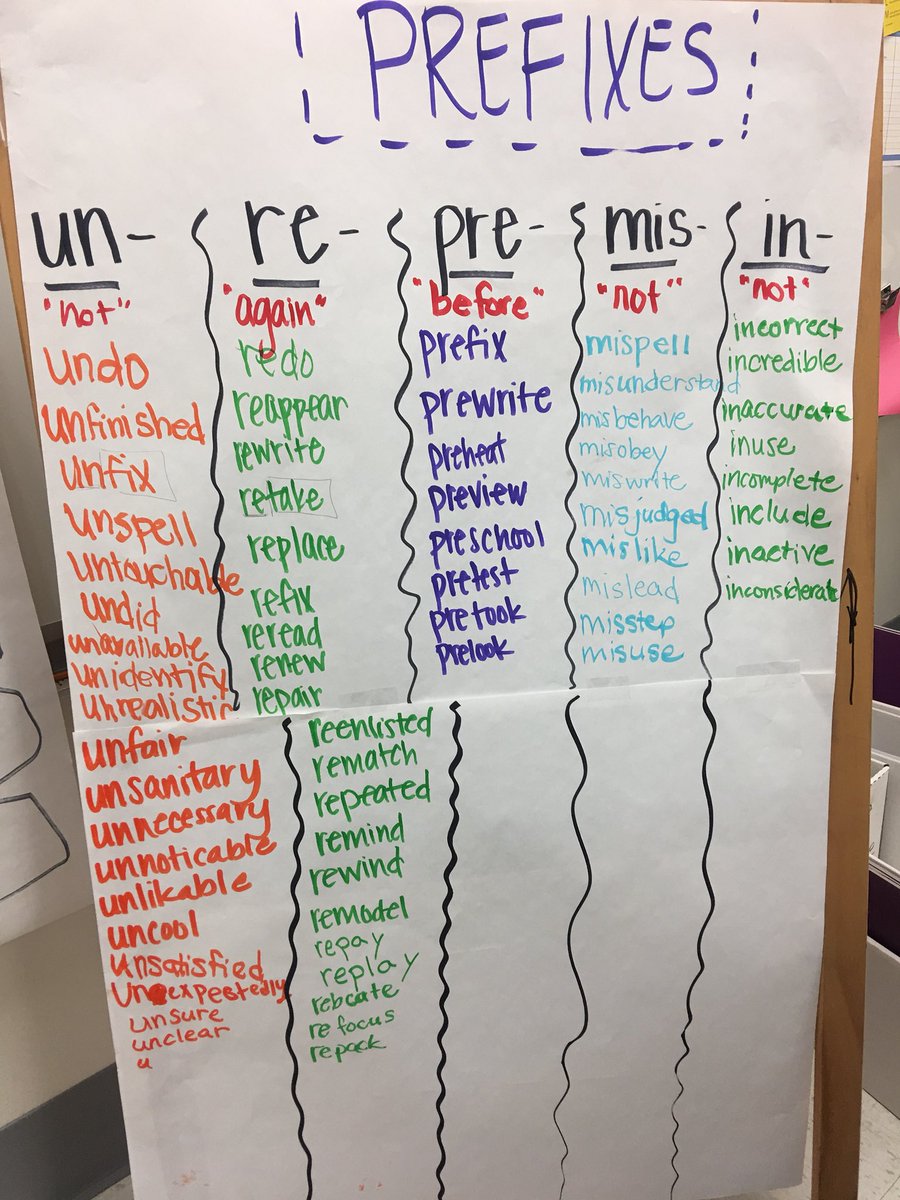 PREFIXES
un-
"not"
undo
unfinished
unfix
unspell
untouchable
undid
unavailable
unidentify
unrealistic
unfair
unsanitary
unnecessary
unnoticable
unlikable
uncool
unsatisfied
unexpestedly
unsure
unclear
u
re-
"again"
redo
reappear
rewrite
retake
replace
refix
reread
renew
repair
reenlisted
rematch
repeated
remind
rewind
remodel
repay
replay
refocus
repack
pre-
"before"
prefix
prewrite
preheat
preview
preschool
pretest
pretook
prelook
mis-
"not"
mispell
misunderstand
misbehave
misobey
miswrite
misjudged
mislike
mislead
misstep
misuse
in-
"not"
incorrect
incredible
inaccurate
inuse
incomplete
include
inactive
inconsiderate